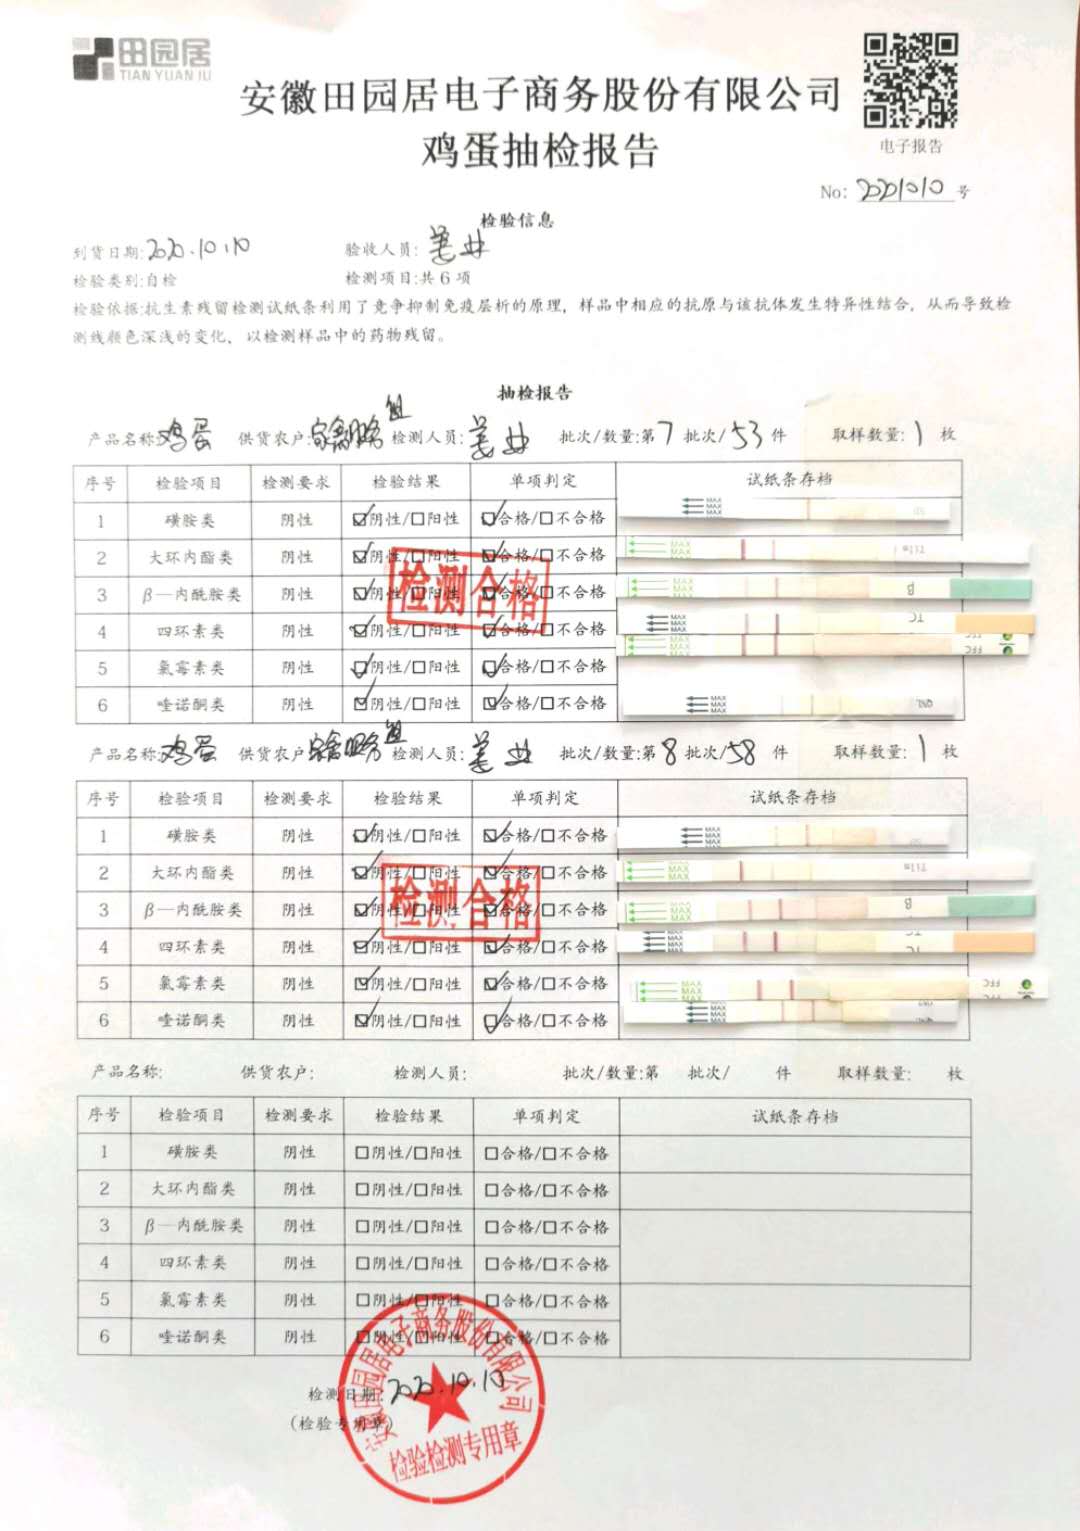 田园居
TIAN YUAN JU
安徽田园居电子商务股份有限公司
鸡蛋抽检报告
电子报告
No: 20201010 号
检验信息
到货日期:2020.10.10 验收人员:
检验类别:自检 检测项目:共6项
检验依据:抗生素残留检测试纸条利用了竞争抑制免疫层析的原理，样品中相应的抗原与该抗体发生特异性结合，从而导致检
测线颜色深浅的变化，以检测样品中的药物残留。
抽检报告
产品名称:鸡蛋 供货农户: 检测人员: 批次/数量:第7批次/53件 取样数量:1枚
序号 检验项目 检测要求 检验结果 单项判定 试纸条存档
1 磺胺类 阴性 ☑阴性/□阳性 ☑合格/□不合格 MAX
2 大环内酯类 阴性 ☑阴性/□阳性 ☑合格/□不合格 MAX
3 β—内酰胺类 阴性 ☑阴性/□阳性 ☑合格/□不合格 MAX β
4 四环素类 阴性 ☑阴性/□阳性 ☑合格/□不合格 MAX TC
5 氯霉素类 阴性 ☑阴性/□阳性 ☑合格/□不合格 MAX FFC
6 喹诺酮类 阴性 ☑阴性/□阳性 ☑合格/□不合格 MAX QNL
检测合格
产品名称:鸡蛋 供货农户: 检测人员: 批次/数量:第8批次/58件 取样数量:1枚
序号 检验项目 检测要求 检验结果 单项判定 试纸条存档
1 磺胺类 阴性 ☑阴性/□阳性 ☑合格/□不合格 MAX
2 大环内酯类 阴性 ☑阴性/□阳性 ☑合格/□不合格 MAX
3 β—内酰胺类 阴性 ☑阴性/□阳性 ☑合格/□不合格 MAX β
4 四环素类 阴性 ☑阴性/□阳性 ☑合格/□不合格 MAX TC
5 氯霉素类 阴性 ☑阴性/□阳性 ☑合格/□不合格 MAX FFC
6 喹诺酮类 阴性 ☑阴性/□阳性 ☑合格/□不合格 MAX
检测合格
产品名称: 供货农户: 检测人员: 批次/数量:第 批次/ 件 取样数量: 枚
序号 检验项目 检测要求 检验结果 单项判定 试纸条存档
1 磺胺类 阴性 □阴性/□阳性 □合格/□不合格
2 大环内酯类 阴性 □阴性/□阳性 □合格/□不合格
3 β—内酰胺类 阴性 □阴性/□阳性 □合格/□不合格
4 四环素类 阴性 □阴性/□阳性 □合格/□不合格
5 氯霉素类 阴性 □阴性/□阳性 □合格/□不合格
6 喹诺酮类 阴性 □阴性/□阳性 □合格/□不合格
检测日期:2020.10.10
(检验专用章)
安徽田园居电子商务股份有限公司
检验检测专用章